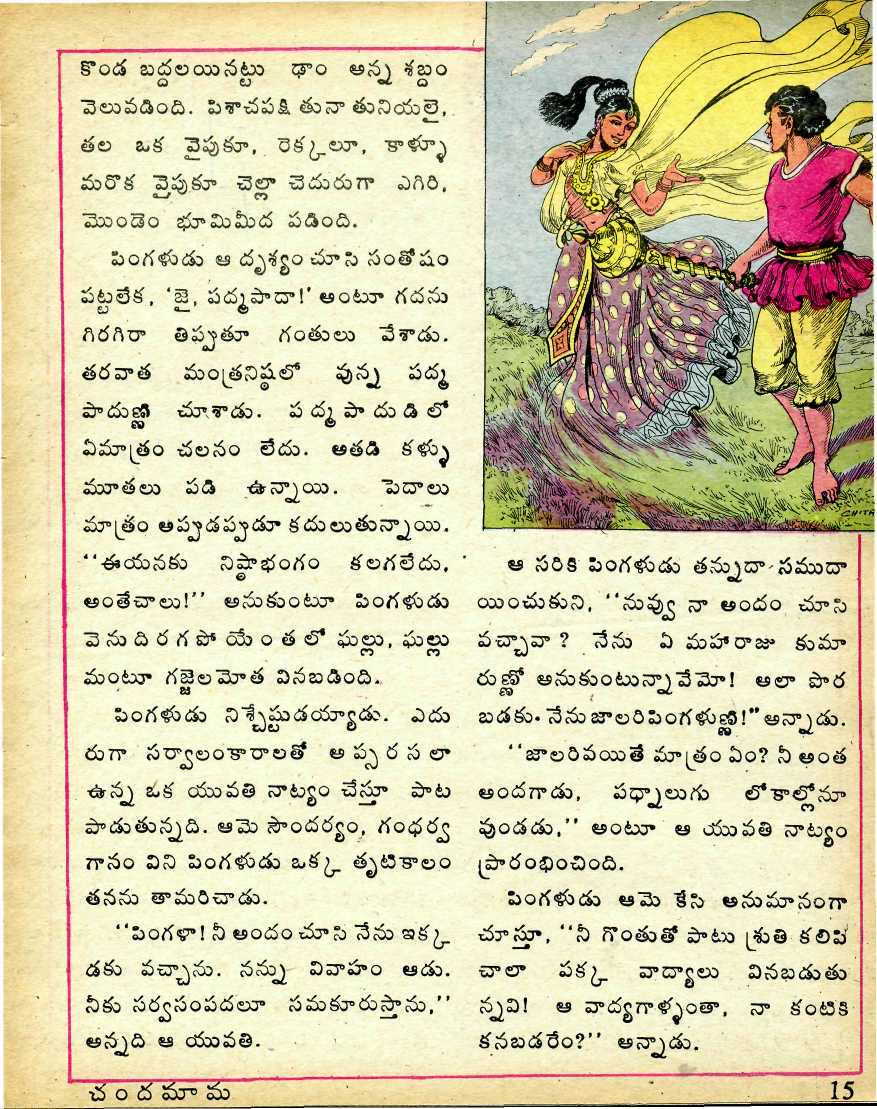 కొండ బద్దలయినట్టు ఢాం అన్న శబ్దం
వెలువడింది. పిశాచపక్షి తునా తునియలై,
తల ఒక వైపుకూ, రెక్కలూ, కాళ్ళూ
మరొక వైపుకూ చెల్లా చెదురుగా ఎగిరి,
మొండెం భూమిమీద పడింది.
పింగళుడు ఆ దృశ్యం చూసి సంతోషం
పట్టలేక, ‘జై, పద్మపాదా!’ అంటూ గదను
గిరగిరా తిప్పుతూ గంతులు వేశాడు.
తరవాత మంత్రనిష్ఠలో వున్న పద్మ
పాదుణ్ణి చూశాడు. పద్మపాదుడిలో
ఏమాత్రం చలనం లేదు. అతడి కళ్ళు
మూతలు పడి ఉన్నాయి. పెదాలు
మాత్రం అప్పుడప్పుడూ కదులుతున్నాయి.
‘‘ఈయనకు నిష్ఠాభంగం కలగలేదు.
అంతేచాలు!’’ అనుకుంటూ పింగళుడు
వెనుదిరగపోయేంతలో ఘల్లు, ఘల్లు
మంటూ గజ్జెలమోత వినబడింది.
పింగళుడు నిశ్చేష్టుడయ్యాడు. ఎదు
రుగా సర్వాలంకారాలతో అప్సరసలా
ఉన్న ఒక యువతి నాట్యం చేస్తూ పాట
పాడుతున్నది. ఆమె సౌందర్యం, గంధర్వ
గానం విని పింగళుడు ఒక్క తృటికాలం
తనను తామరిచాడు.
‘‘పింగళా! నీ అందం చూసి నేను ఇక్క
డకు వచ్చాను. నన్ను వివాహం ఆడు.
నీకు సర్వసంపదలూ సమకూరుస్తాను,’’
అన్నది ఆ యువతి.
CHITRA
ఆ సరికి పింగళుడు తన్నుదా సముదా
యించుకుని, ‘‘నువ్వు నా అందం చూసి
వచ్చావా? నేను ఏ మహారాజు కుమా
రుణ్ణో అనుకుంటున్నావేమో! అలా పొర
బడకు. నేను జాలరిపింగళుణ్ణి!’’ అన్నాడు.
‘‘జాలరివయితే మాత్రం ఏం? నీ అంత
అందగాడు, పధ్నాలుగు లోకాల్లోనూ
వుండడు,’’ అంటూ ఆ యువతి నాట్యం
ప్రారంభించింది.
పింగళుడు ఆమె కేసి అనుమానంగా
చూస్తూ, ‘‘నీ గొంతుతో పాటు శ్రుతి కలిపి
చాలా పక్క వాద్యాలు వినబడుతు
న్నవి! ఆ వాద్యగాళ్ళంతా, నా కంటికి
కనబడరేం?’’ అన్నాడు.
చందమామ
15